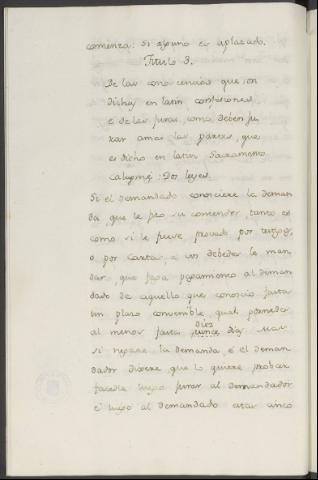 comienza: si alguno es aplazado.
Titulo 3.
De las conocencias que son
dichas en latin confesiones
e de las juras como deben ju
rar amas las partes, que
es dicho en latin Sacramento
calupnie: Dos leyes.
Si el demandado conosciere la deman
da, que le fizo su contendor, tanto es
como si le fuese provado por testigos
o por carta, e vos debedes le man
dar, que faga pagamiento al deman
dado de aquello que conoscio fasta
un plazo convenible, qual
al menor fasta diez dias. Mas
si negare la demanda, e el deman
dador dixere que lo quiere probar
facedle luego jurar al demandador
e luego al demandado estas cinco